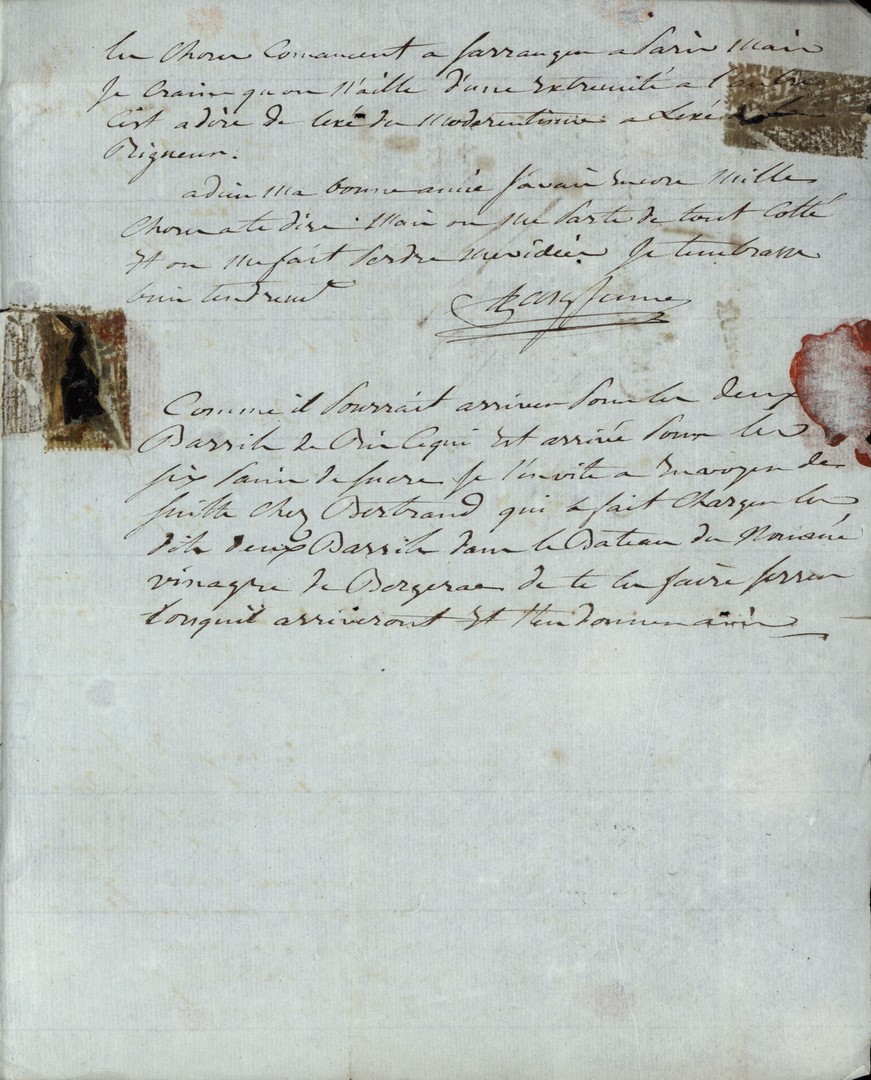 les Choses Comancent a sarranger a Paris Mais
Je Crains qu on n'aille d'une Extremité a l'autre
C'est adire de lexé du moderentisme a Lexé de
Rigueur.
adieu ma bonne amie J'avais Encore Mille
Choses a te dire. Mais on me Parle de tout Cotté
Et on me fait Perdre mes idées Je t'embrasse
bien tendremt
Jeune
Comme il Pourrait arriver Pour les deux
Barrils de Vin Cequi Est arrivé Pour les
six Pains de sucre Je t'invite a Envoyer de
suitte Chez Bertrand qui a fait Charger les
dits deux Barrils dans le Bateau du Nommé
vinagre de Bergerac de te les faire serrer
lorsquil arriveront Et t'en donner avis